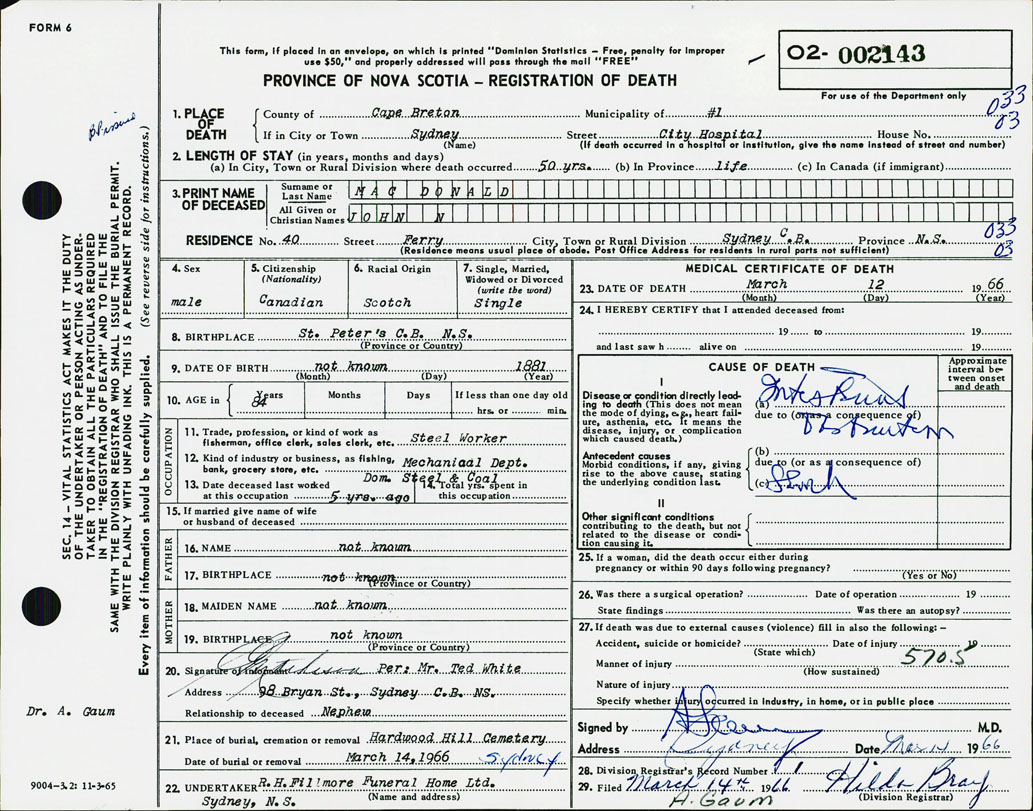 FORM 6
This form, if placed in an envelope, on which is printed "Dominion Statistics – Free, penalty for improper
use $50," and properly addressed will pass through the mail "FREE"
PROVINCE OF NOVA SCOTIA – REGISTRATION OF DEATH
02- 002143
For use of the Department only
033
03
1. PLACE OF DEATH
County of Cape Breton Municipality of #1
If in City or Town Sydney Street City Hospital House No.
(Name) (If death occurred in a hospital or institution, give the name instead of street and number)
2. LENGTH OF STAY (in years, months and days)
(a) In City, Town or Rural Division where death occurred 50 yrs. (b) In Province life (c) In Canada (if immigrant)
3. PRINT NAME OF DECEASED
Surname or Last Name MAC DONALD
All Given or Christian Names JOHN N
033
03
RESIDENCE No. 40 Street Ferry City, Town or Rural Division Sydney C.B. Province N.S.
(Residence means usual place of abode. Post Office Address for residents in rural parts not sufficient)
4. Sex
male
5. Citizenship (Nationality)
Canadian
6. Racial Origin
Scotch
7. Single, Married, Widowed or Divorced (write the word)
Single
8. BIRTHPLACE St. Peter's C.B. N.S.
(Province or Country)
9. DATE OF BIRTH not known 1881
(Month) (Day) (Year)
10. AGE in Years Months Days If less than one day old
84 hrs. or min.
OCCUPATION
11. Trade, profession, or kind of work as fisherman, office clerk, sales clerk, etc. Steel Worker
12. Kind of industry or business, as fishing, bank, grocery store, etc. Mechanial Dept.
Dom. Steel & Coal
13. Date deceased last worked at this occupation 5 yrs. ago 14. Total yrs. spent in this occupation
15. If married give name of wife or husband of deceased
FATHER
16. NAME not known
17. BIRTHPLACE not known
(Province or Country)
MOTHER
18. MAIDEN NAME not known
19. BIRTHPLACE not known
(Province or Country)
20. Signature of Informant Per: Mr. Ted White
Address 98 Bryan St., Sydney C.B. NS.
Relationship to deceased Nephew
21. Place of burial, cremation or removal Hardwood Hill Cemetery
Date of burial or removal March 14,1966 Sydney
22. UNDERTAKER R.H.Fillmore Funeral Home Ltd.
Sydney, N.S. (Name and address)
MEDICAL CERTIFICATE OF DEATH
23. DATE OF DEATH March 12 1966
(Month) (Day) (Year)
24. I HEREBY CERTIFY that I attended deceased from:
19 to 19
and last saw h alive on 19
CAUSE OF DEATH
Approximate interval between onset and death
I
Disease or condition directly leading to death (This does not mean the mode of dying, e.g., heart failure, asthenia, etc. It means the disease, injury, or complication which caused death.)
(a) Intestinal
due to (or as a consequence of)
Obstruction
Antecedent causes
Morbid conditions, if any, giving rise to the above cause, stating the underlying condition last.
(b)
due to (or as a consequence of)
(c) Shock
II
Other significant conditions
contributing to the death, but not related to the disease or condition causing it.
25. If a woman, did the death occur either during
pregnancy or within 90 days following pregnancy?
(Yes or No)
26. Was there a surgical operation? Date of operation 19
State findings Was there an autopsy?
27. If death was due to external causes (violence) fill in also the following:–
Accident, suicide or homicide? Date of injury 19
(State which)
570.5
Manner of injury
(How sustained)
Nature of injury
Specify whether injury occurred in industry, in home, or in public place
Signed by M.D.
Address Sydney Date Mar 14 1966
28. Division Registrar's Record Number
29. Filed March 14th 1966 Hilda Bray
A. Gaum (Division Registrar)
SEC. 14 – VITAL STATISTICS ACT MAKES IT THE DUTY
OF THE UNDERTAKER OR PERSON ACTING AS UNDER-
TAKER TO OBTAIN ALL THE PARTICULARS REQUIRED
IN THE "REGISTRATION OF DEATH" AND TO FILE THE
SAME WITH THE DIVISION REGISTRAR WHO SHALL ISSUE THE BURIAL PERMIT.
WRITE PLAINLY WITH UNFADING INK. THIS IS A PERMANENT RECORD.
Every item of information should be carefully supplied. (See reverse side for instructions.)
Dr. A. Gaum
9004-3.2: 11-3-65